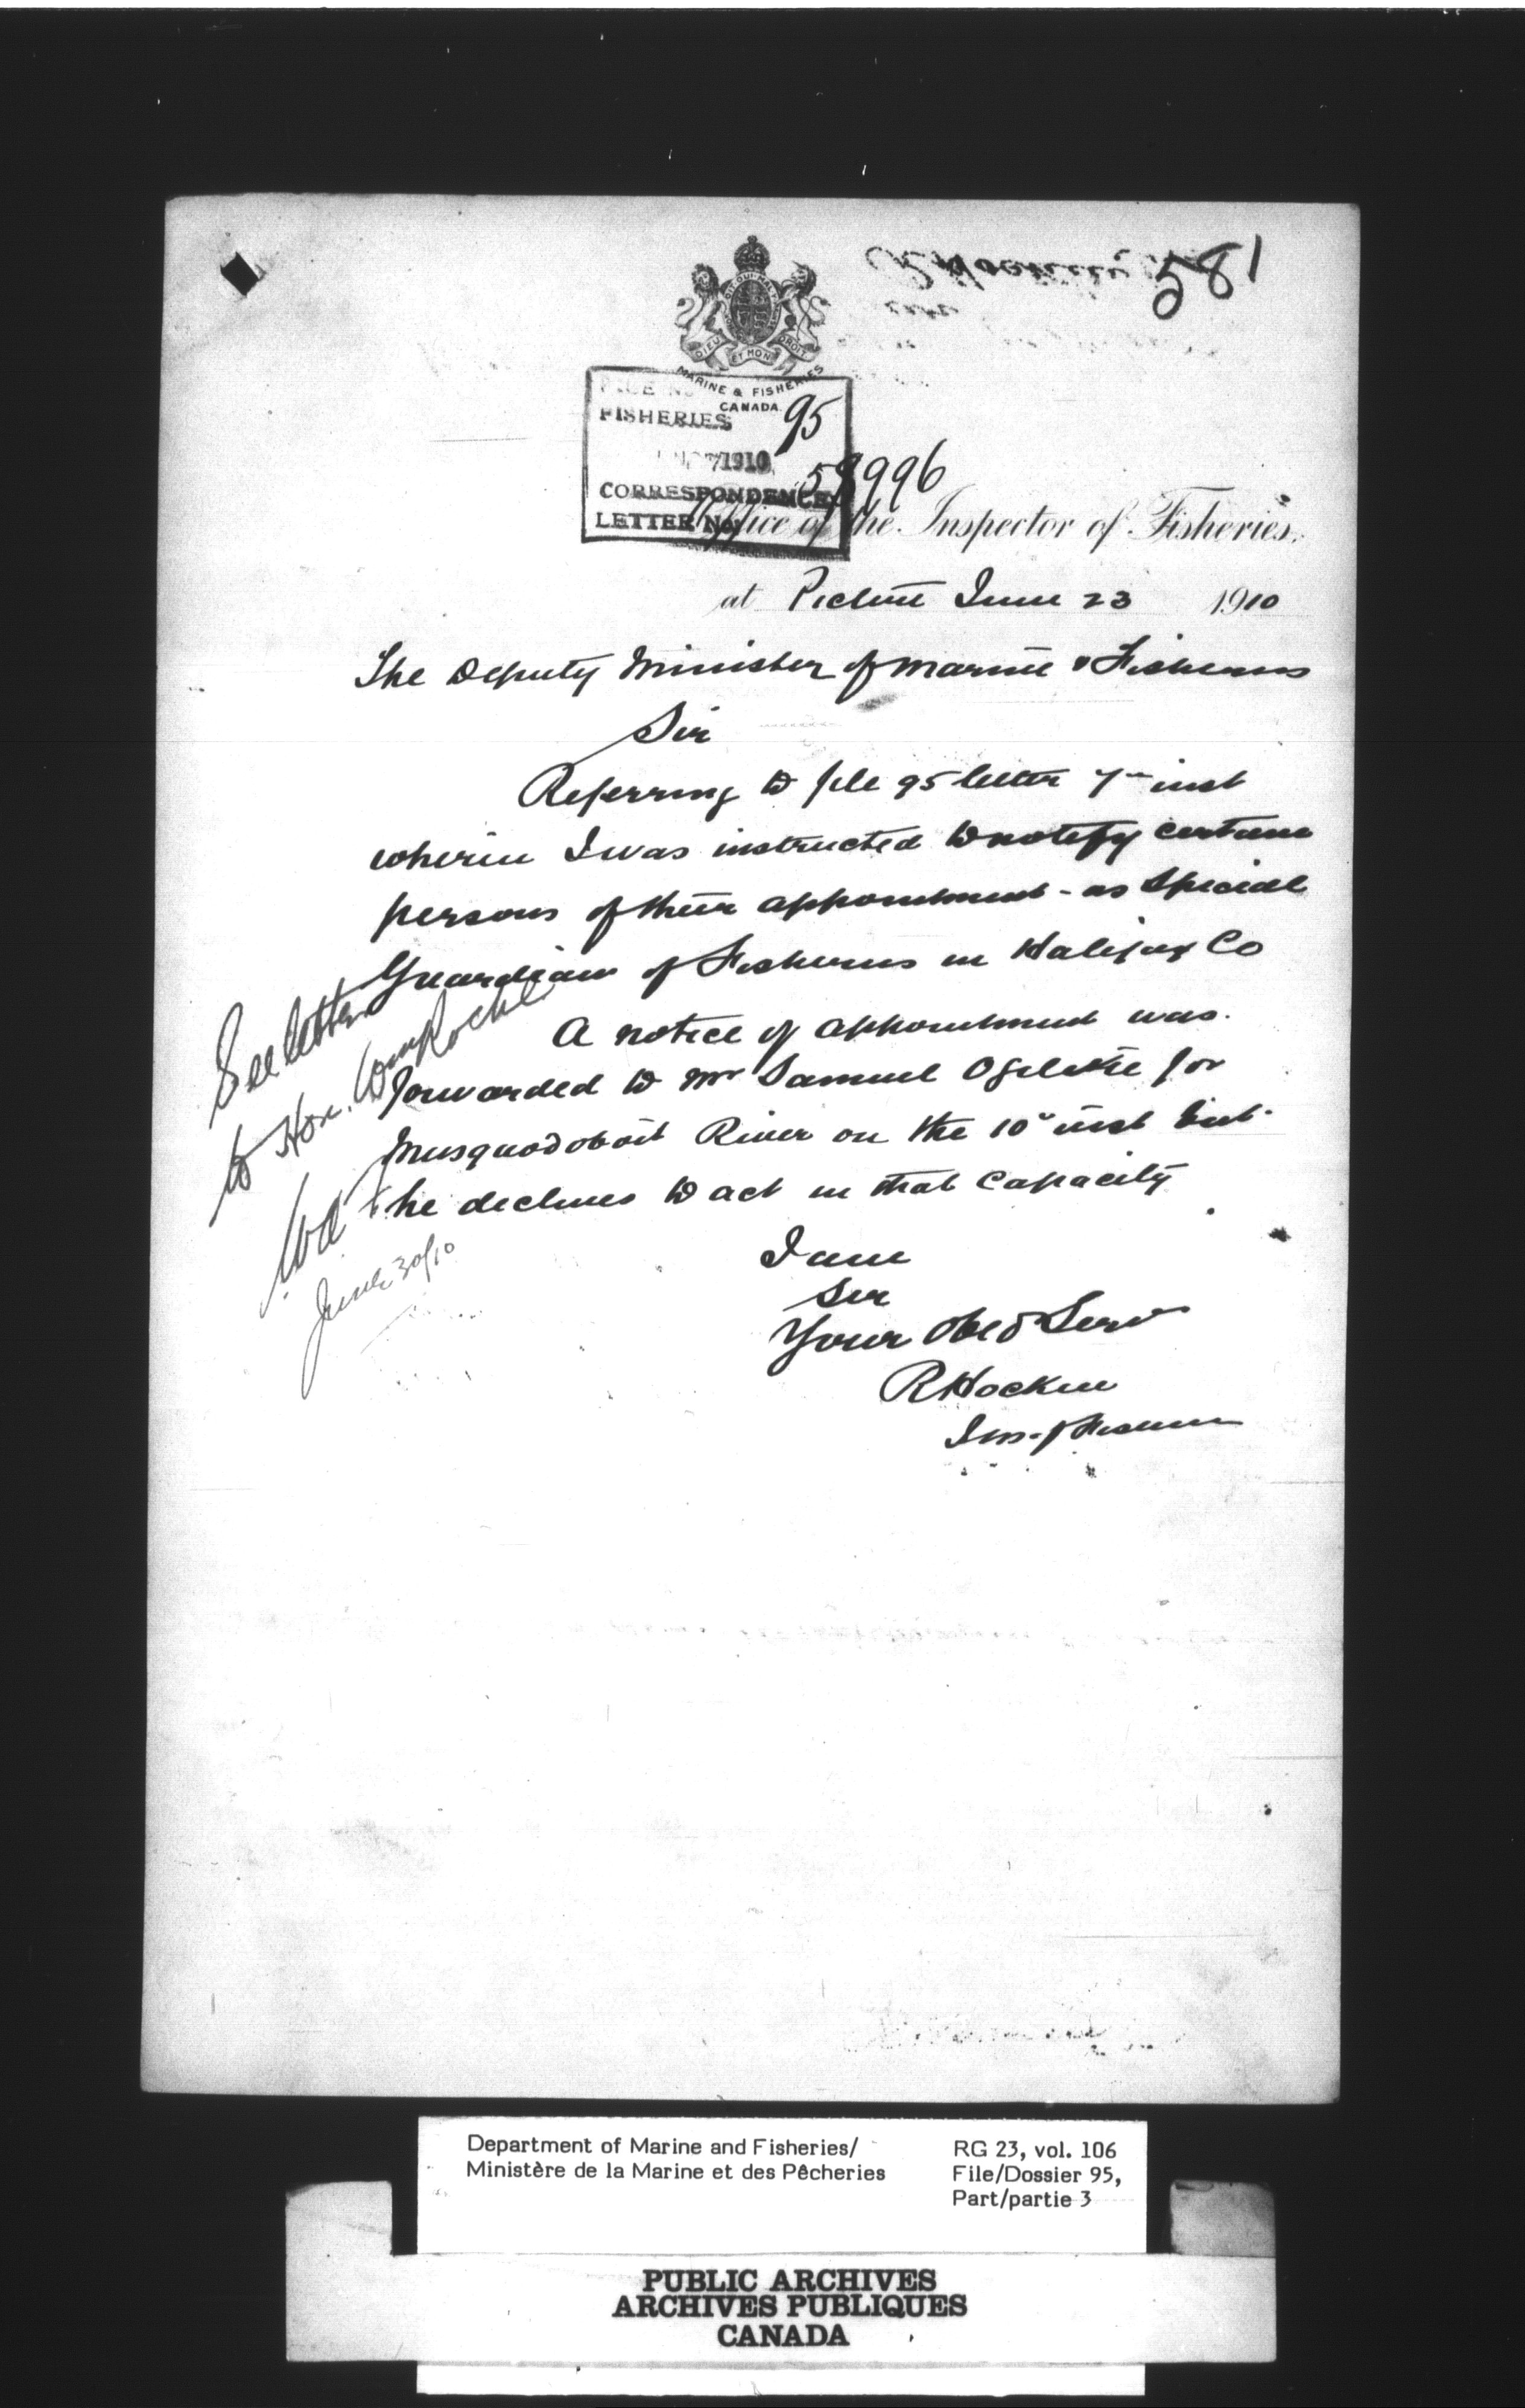 581
DIEU ET MON DROIT
MARINE & FISHERIES
CANADA.
FILE No.
FISHERIES 95
1910
CORRESPONDENCE
LETTER No.
Office of the Inspector of Fisheries.
at Pictou June 23 1910
The Deputy Minister of Marine & Fisheries
Sir
Referring to file 95 letter 7th inst
wherein I was instructed to notify certain
persons of their appointment - as Special
Guardians of Fisheries in Halifax Co
A notice of appointment was
forwarded to Mr Samuel Ogilvie for
Musquodoboit River on the 10th inst but
he declines to act in that Capacity
I am
Sir
Your Obed Serv
R Hockin
Ins. of Fisheries
See letter
to Hon. Wm Roche
June 30/10
Department of Marine and Fisheries/
Ministère de la Marine et des Pêcheries
RG 23, vol. 106
File/Dossier 95,
Part/partie 3
PUBLIC ARCHIVES
ARCHIVES PUBLIQUES
CANADA